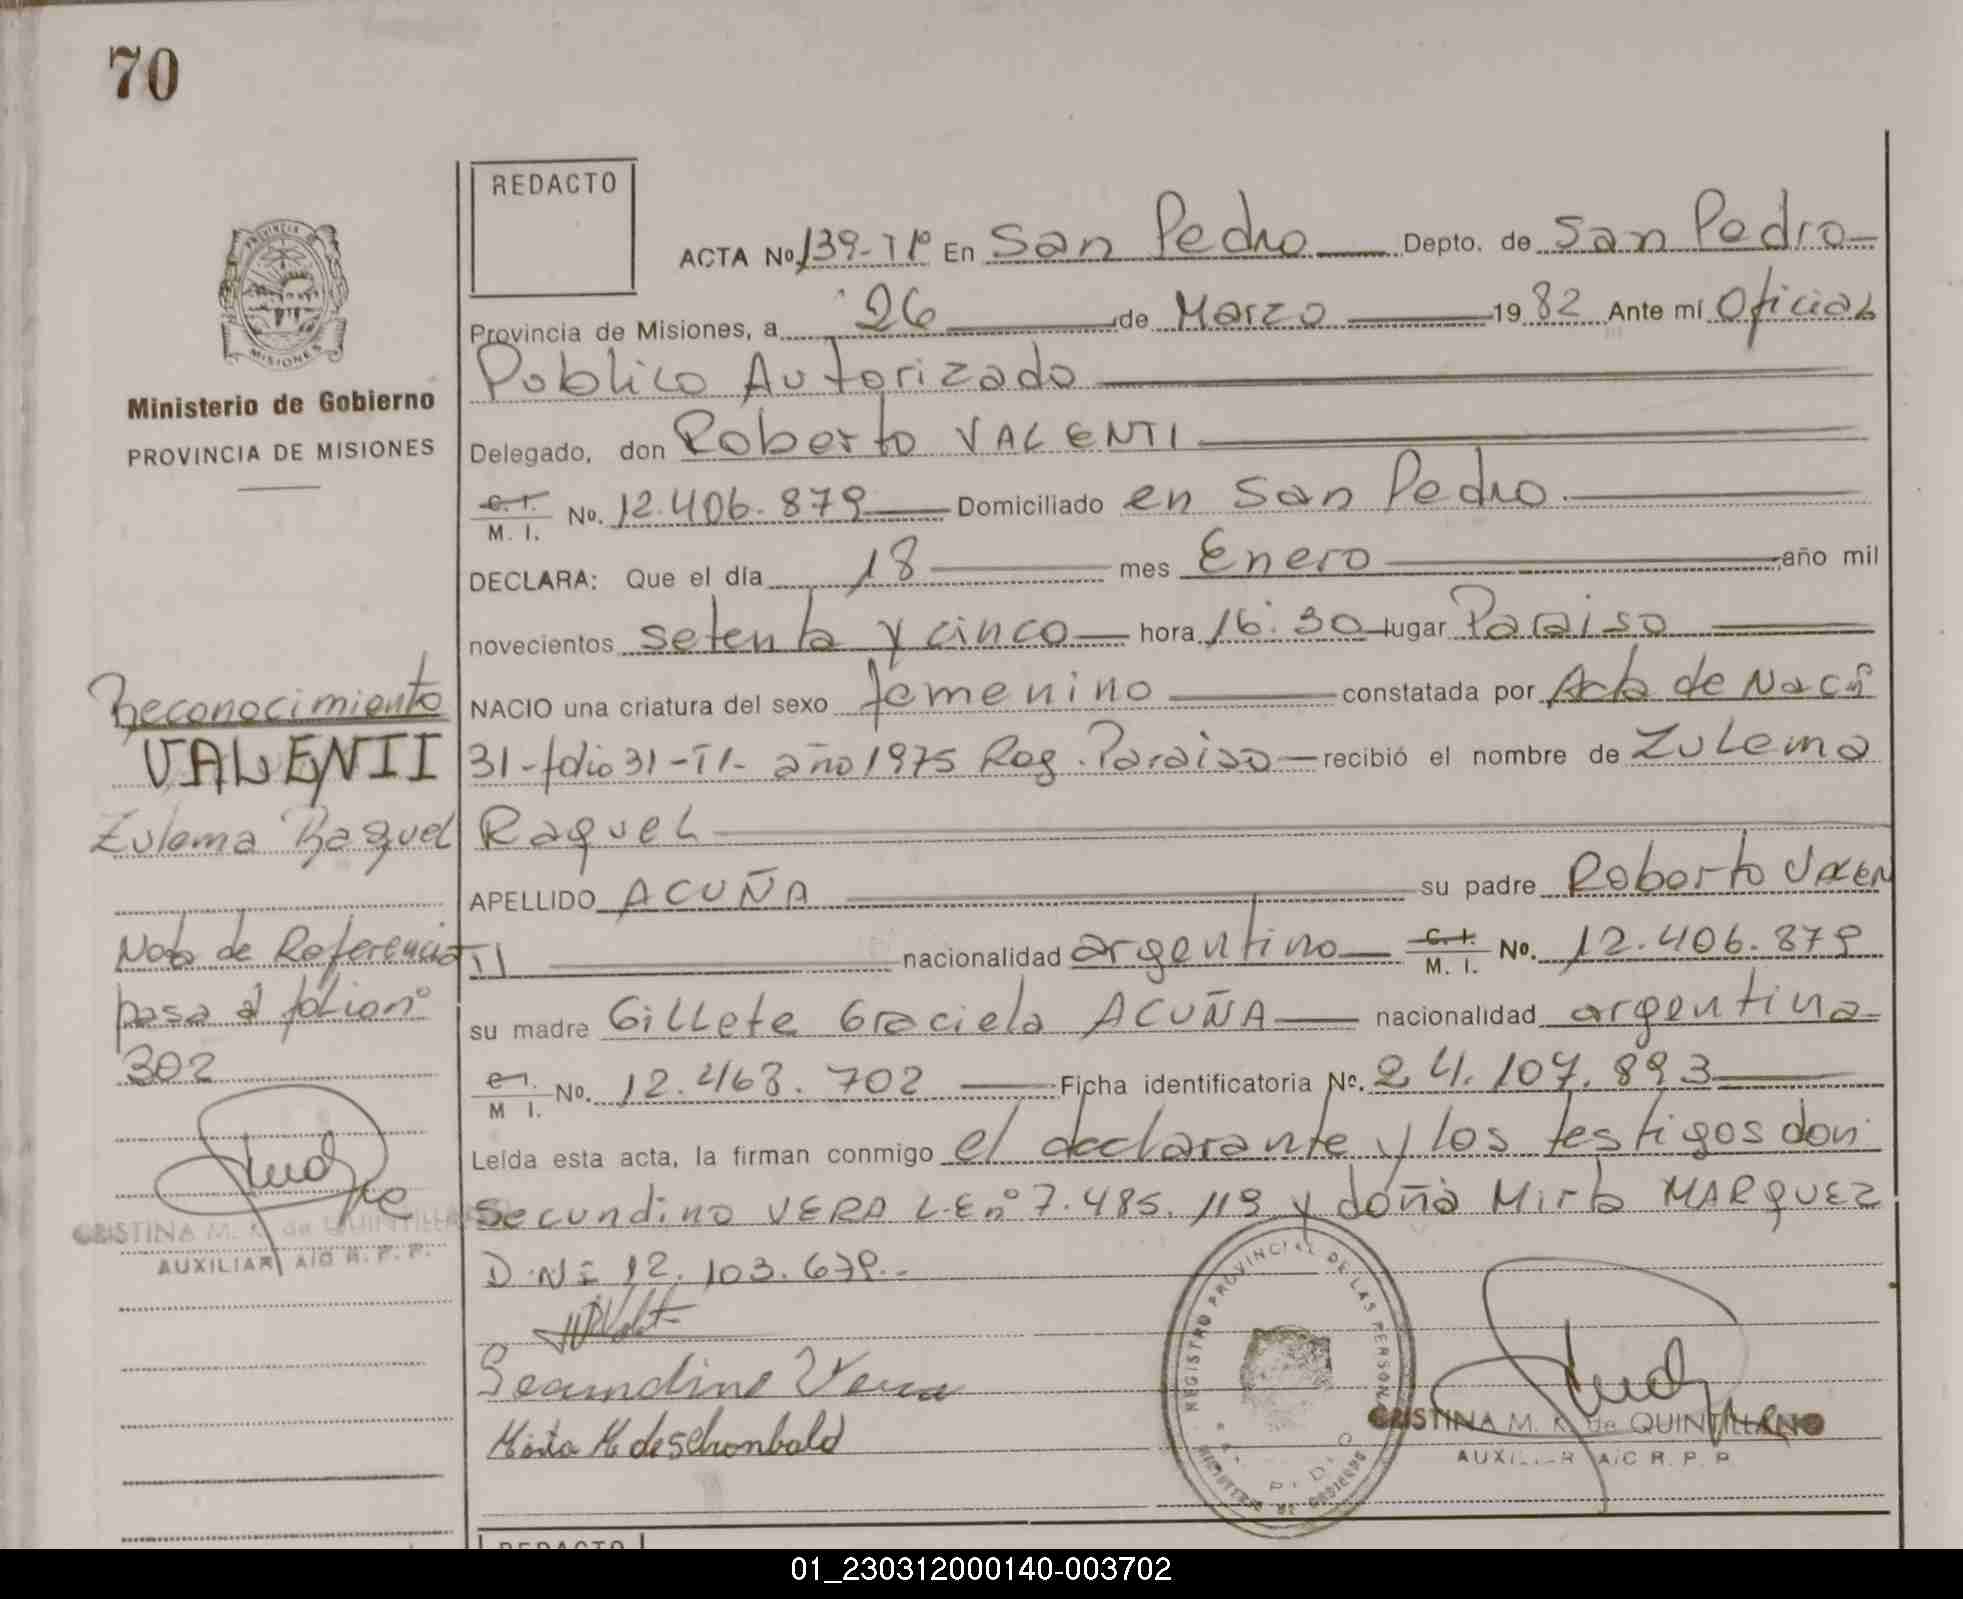 70
REDACTO
ACTA No. 139-Tº En San Pedro Depto. de San Pedro
Provincia de Misiones, a 26 de Marzo 1982 Ante mí Oficial
Publico Autorizado
Ministerio de Gobierno
PROVINCIA DE MISIONES
Delegado, don Roberto VALENTI
C. I. M. I. No. 12.406.879 Domiciliado en San Pedro
DECLARA: Que el día 18 mes Enero año mil
novecientos setenta y cinco hora 16:30 lugar Paraiso
NACIO una criatura del sexo femenino constatada por Acta de Nacñ
31-folio 31-TI- año 1975 Reg. Paraiso recibió el nombre de Zulema
Raquel
APELLIDO ACUÑA su padre Roberto VALEN
TI nacionalidad argentino C. I. M. I. No. 12.406.879
su madre Gillete Graciela ACUÑA nacionalidad argentina
M I. No. 12.463.702 Ficha identificatoria No. 24.107.893
Leída esta acta, la firman conmigo el declarante y los testigos don
Secundino VERA L.E nº 7.485.119 y doña Mirta MARQUEZ
D.N.I 12.103.679.-
Secundino Vera
Mirta M de Schonbald
Reconocimiento
VALENTI
Zulema Raquel
Nota de Referencia
pasa al folio nº
302
CRISTINA M. K. de QUINTILLANO
AUXILIAR A/C R. P. P.
PROVINCIA
MISIONES
REGISTRO PROVINCIAL DE LAS PERSONAS
MINISTERIO DE GOBIERNO
CRISTINA M. K. de QUINTILLANO
AUXILIAR A/C R. P. P.
REDACTO
01_230312000140-003702